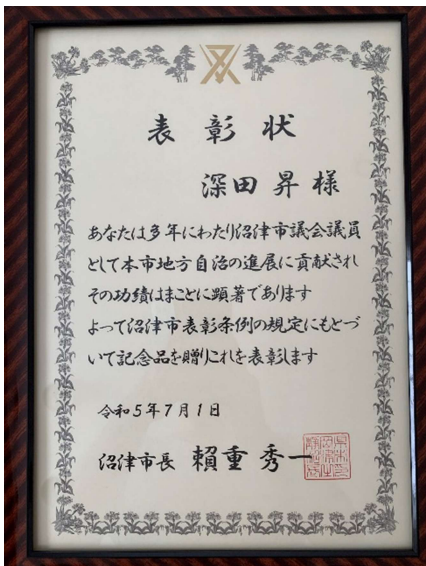 表彰状
深田昇様
あなたは多年にわたり沼津市議会議員
として本市地方自治の進展に貢献され
その功績はまことに顕著であります
よって沼津市表彰条例の規定にもとづ
いて記念品を贈りこれを表彰します
令和5年7月1日
沼津市長 頼重秀一